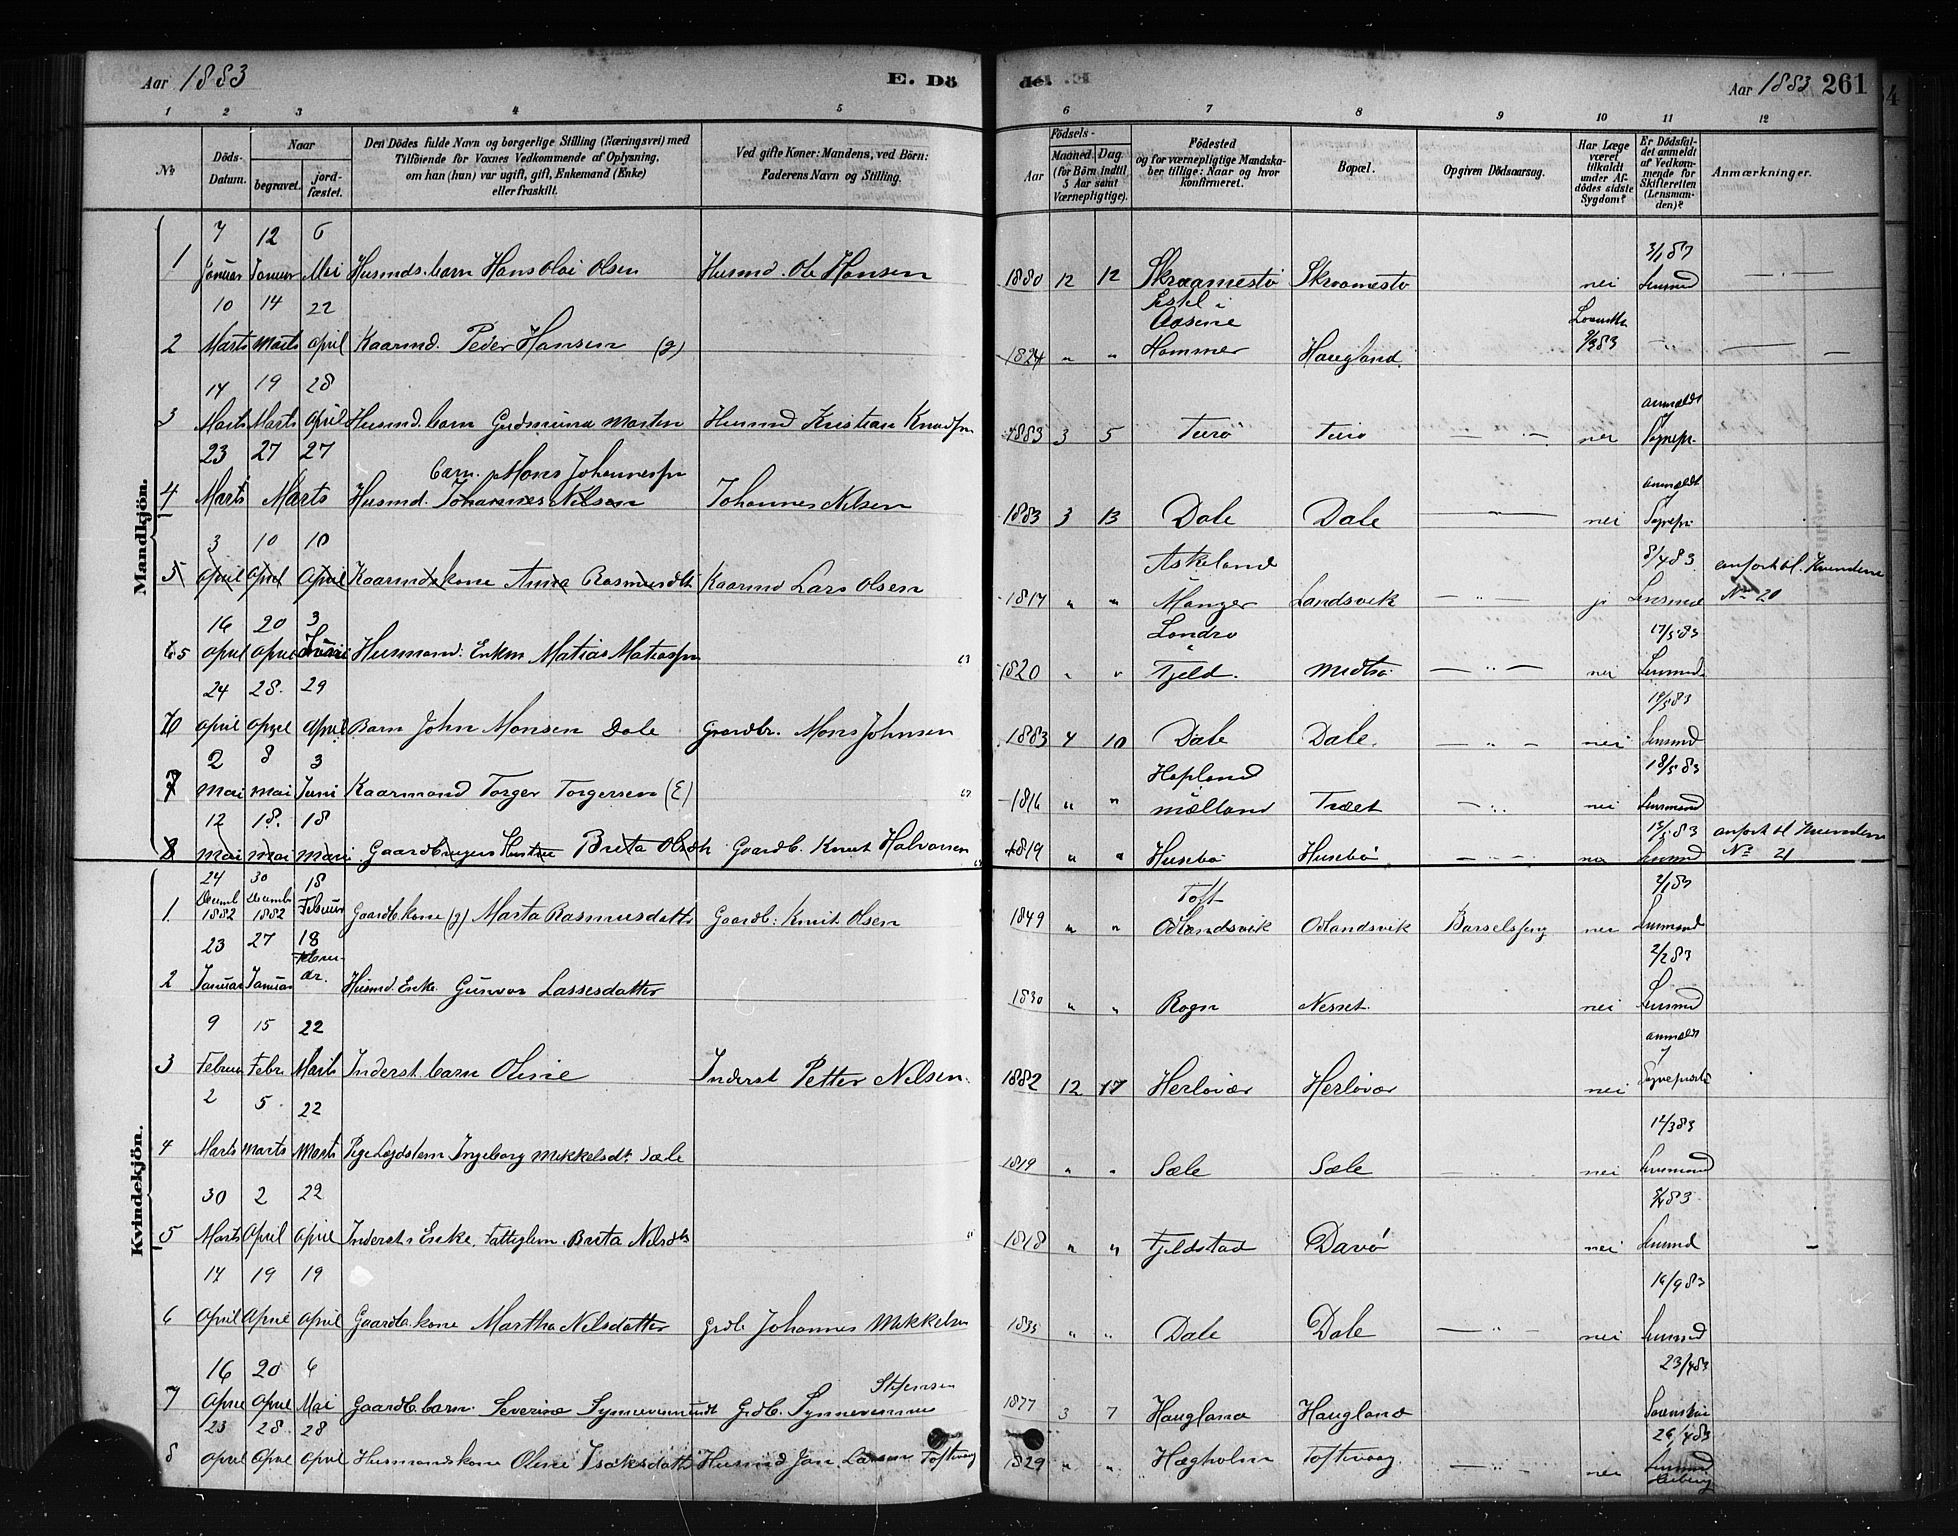 Aar 1883 E. Dö
del. Aar 1883 261
1 2 3 4 5
6 7 8 9 10 11 12
No
Döds-Datum.
Naar
begravet.
jord-fæstet.
Den Dödes fulde Navn og borgerlige Stilling (Næringsvei) med
Tilföiende for Voxnes Vedkommende af Oplysning,
om han (hun) var ugift, gift, Enkemand (Enke)
eller fraskilt.
Ved gifte Koner: Mandens, ved Börn:
Faderens Navn og Stilling.
Födsels-
Aar
Maaned. Dag.
(for Börn indtil
5 Aar samt
Værnepligtige).
Födested
og for værnepligtige Mandska-
ber tillige: Naar og hvor
konfirmeret.
Bopæl.
Opgiven Dödsaarsag.
Har Læge
været
tilkaldt
under Af-
dödes sidste
Sygdom?
Er Dödsfal-
det anmeldt
af Vedkom-
mende for
Skifteretten
(Lensman-
den)?
Anmærkninger.
Mandkjön.
7 12 6
1 Januar Januar Mai Husmds. barn Hans Olai Olsen Husmd. Ole Hansen 1880 12 12 Skraamestö Skraamestö nei Lensmd
10 14 22
2 Marts Marts April Kaarmd. Peder Hansen (g) 1824 " " Hammer Haugland
14 19 28
3 Marts Marts April Husmd. barn Gudmund Marten Husmd Kristian Knudsen 1883 3 5 Turö Turö nei anmeldt Sognepr.
23 27 27
barn. Mons Johannessen
4 Marts Marts Husmd. Johannes Nilsen Johannes Nilsen 1883 3 13 Dale Dale nei anmeldt Sognepr.
3 10 10
5 April April April Kaarmdskone Anna Rasmusdtr Kaarmd Lars Olsen 1817 " " Askeland Manger Landsvik ja 8/4 83 Lensmd anfört bl. Kvinderne No 20
16 20 3
5 April April Juni Husmand: Enkm Matias Matiassen 1820 " " Fjeld. Midtsö nei 17/5 83 Lensmd.
24 28. 29
6 April April April Barn John Monsen Dale Gaardbr. Mons Johnsen 1883 4 10 Dale Dale. nei Lensmd
2 8 3
7 Mai Mai Juni Kaarmand Torger Torgersen (E) 1816 " " Hopland Mælland Træet nei 18/5 83 Lensmand
12 18. 18
8 Mai Mai Mai Gaardbrugers Hustru Brita Olsdtr Gaardb. Knut Halvorsen 1819 " " Husebö Husebö nei Lensmd anfört bl Kvinderne No 21
Kvindekjön.
24 30 18
1 Decemb 1882 Decemb 1882 Februar Gaardb. kone (g) Marta Rasmusdatter Gaardb: Knut Olsen 1849 " " Toft Odlandsvik Odlandsvik Barselsfeber nei 2/1 83 Lensmand
23 27 18
2 Januar Januar Februar. Husmd. Enke. Gunvor Lassesdatter 1830 " " Rogn Nesset nei 2/2 83 Lensmd
9 15 22
3 Februar Febr. Marts Inderst. barn Oline Inderst Petter Nilsen. 1882 12 17 Herlövær Herlövær nei anmeldt
2 5. 22
4 Marts Marts Marts Pige Lægdslem Ingeborg Mikkelsdt. Sæle 1819 " " Sæle Sæle nei 12/3 83 Lensmand
30 2 29
5 Marts April April Inderst. Enke, Fattiglem. Brita Nilsdtr 1818 " " Fjeldstad Davö nei Lensmd
14 19 19
6 April April April Gaardb. kone Martha Nilsdatter Grdb Johannes Mikkelsen 1835 " " Dale Dale nei Lensmd
16 20 6
7 April April Mai Gaardb. barn. Severine 1877 3 7 Haugland Haugland 23/4 83
23 28. 28
8 April April April Husmandskone Oline Isaksdatter Husmd Jan Larsen Toftevaag 1829 " " Hægholm Toftevaag nei 26/4 83 Lensmd